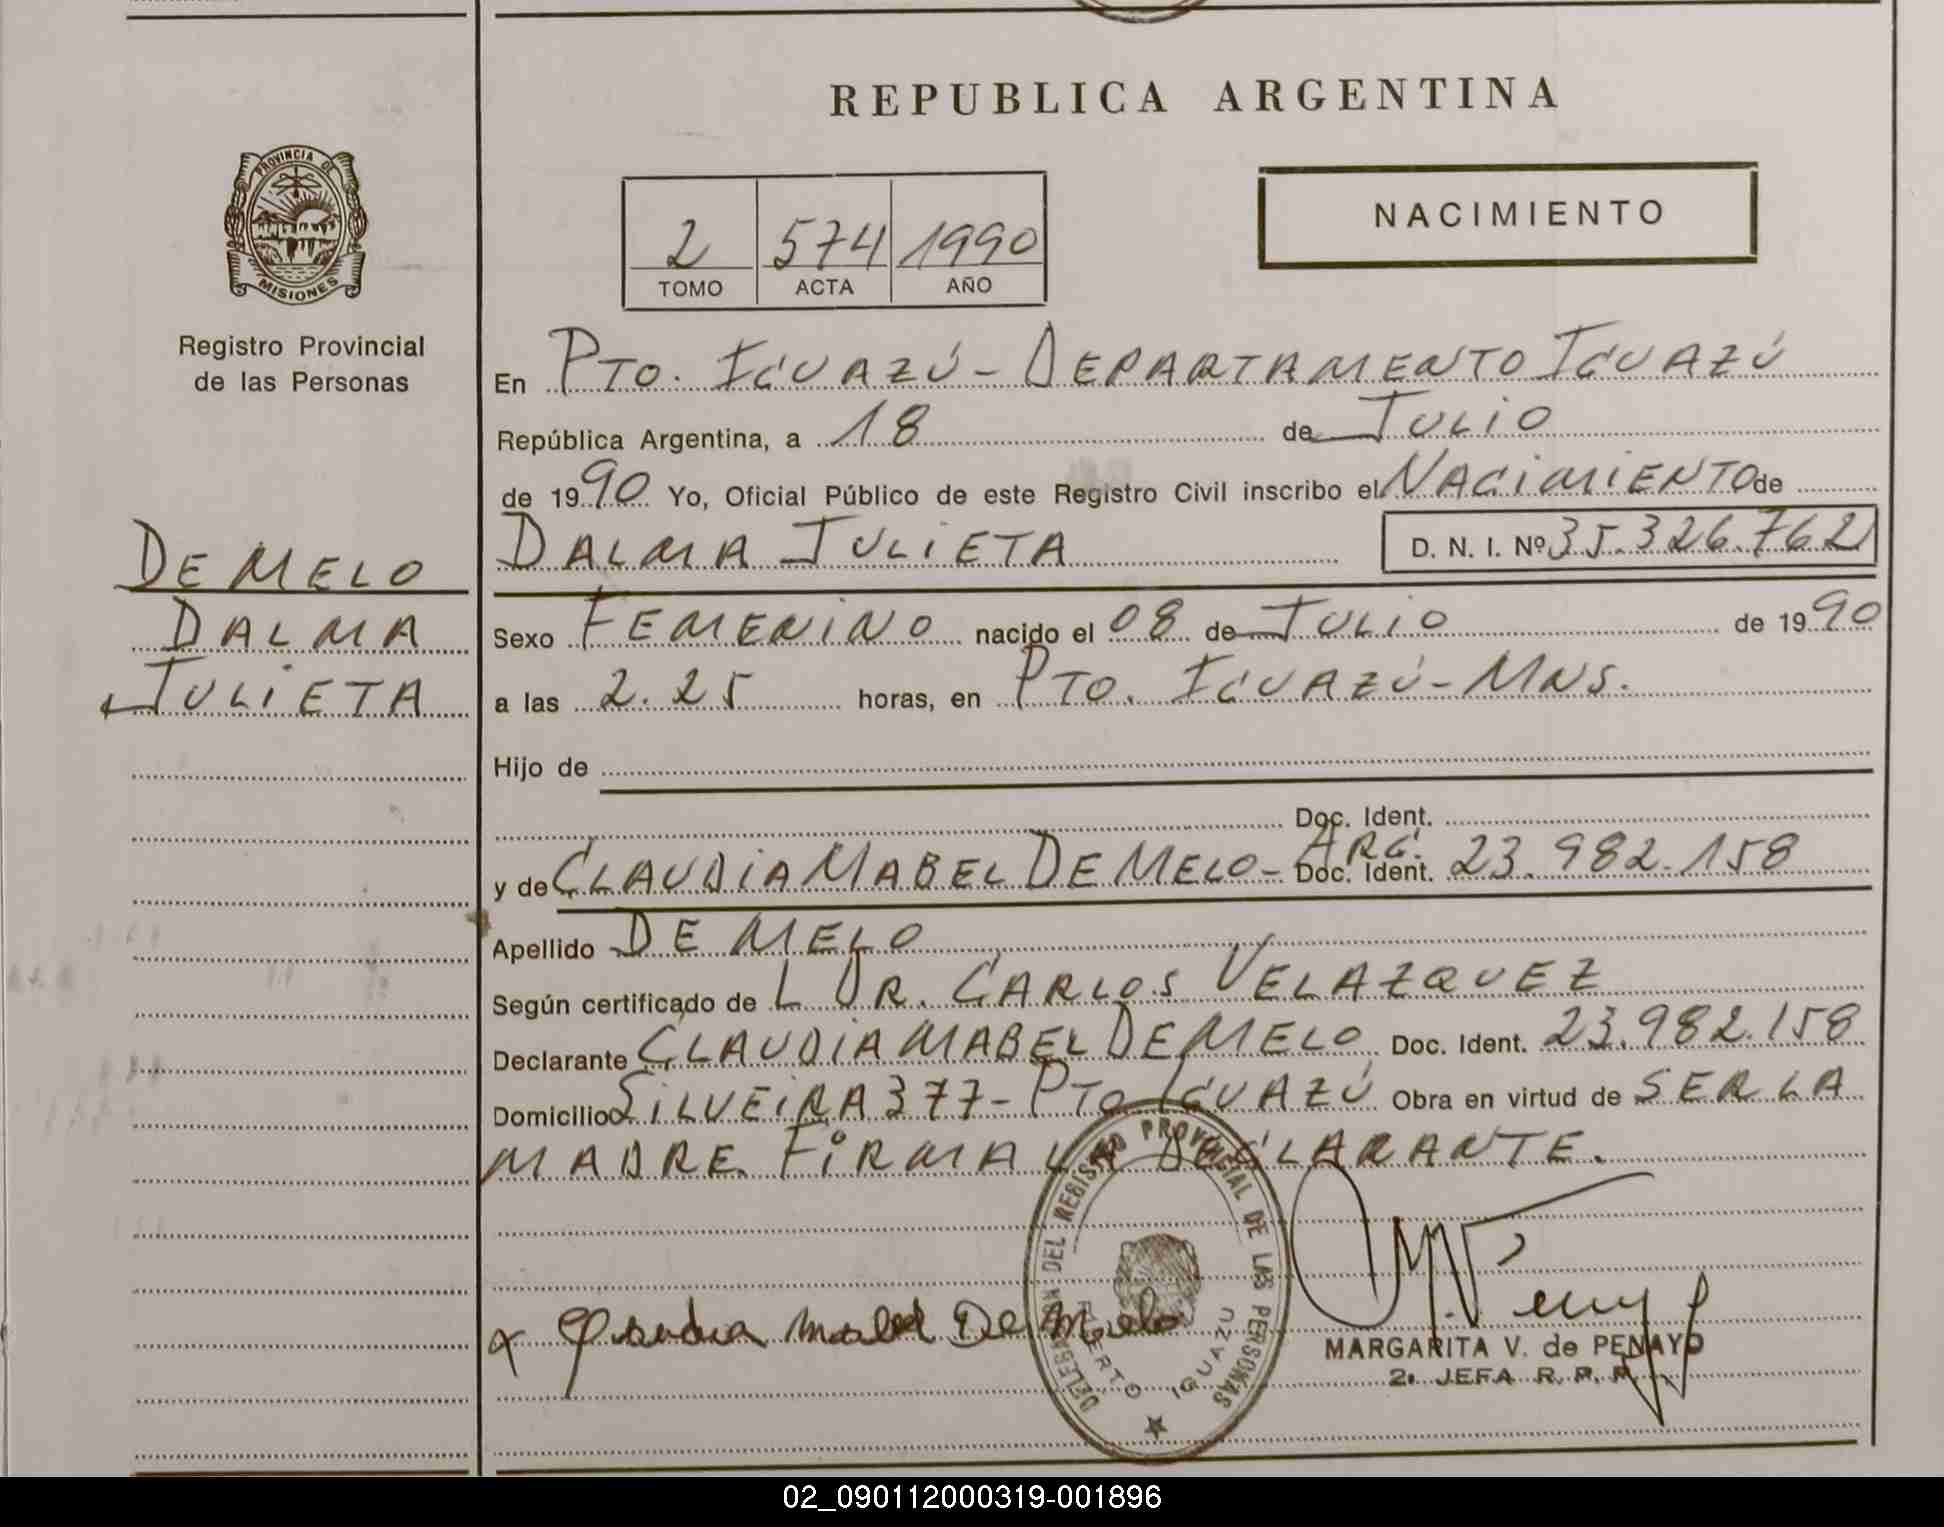 REPUBLICA ARGENTINA
PROVINCIA DE
MISIONES
Registro Provincial
de las Personas
2 574 1990
TOMO ACTA AÑO
NACIMIENTO
En PTO. IGUAZÚ - DEPARTAMENTO IGUAZÚ
República Argentina, a 18 de JULIO
de 1990 Yo, Oficial Público de este Registro Civil inscribo el NACIMIENTO de
DALMA JULIETA D. N. I. Nº 35.326.762
DE MELO
DALMA
JULIETA
Sexo FEMENINO nacido el 08 de JULIO de 1990
a las 2.25 horas, en PTO. IGUAZÚ - MNS.
Hijo de
Doc. Ident.
y de CLAUDIA MABEL DE MELO - ARG. Doc. Ident. 23.982.158
Apellido DE MELO
Según certificado de L DR. CARLOS VELAZQUEZ
Declarante CLAUDIA MABEL DE MELO Doc. Ident. 23.982.158
Domicilio SILVEIRA 377 - PTO IGUAZÚ Obra en virtud de SER LA
MADRE. FIRMA LA DECLARANTE.
DELEGACION DEL REGISTRO PROVINCIAL DE LAS PERSONAS
PUERTO IGUAZU
x Claudia Mabel De Melo
MARGARITA V. de PENAYO
2. JEFA R. P. P.
02_090112000319-001896